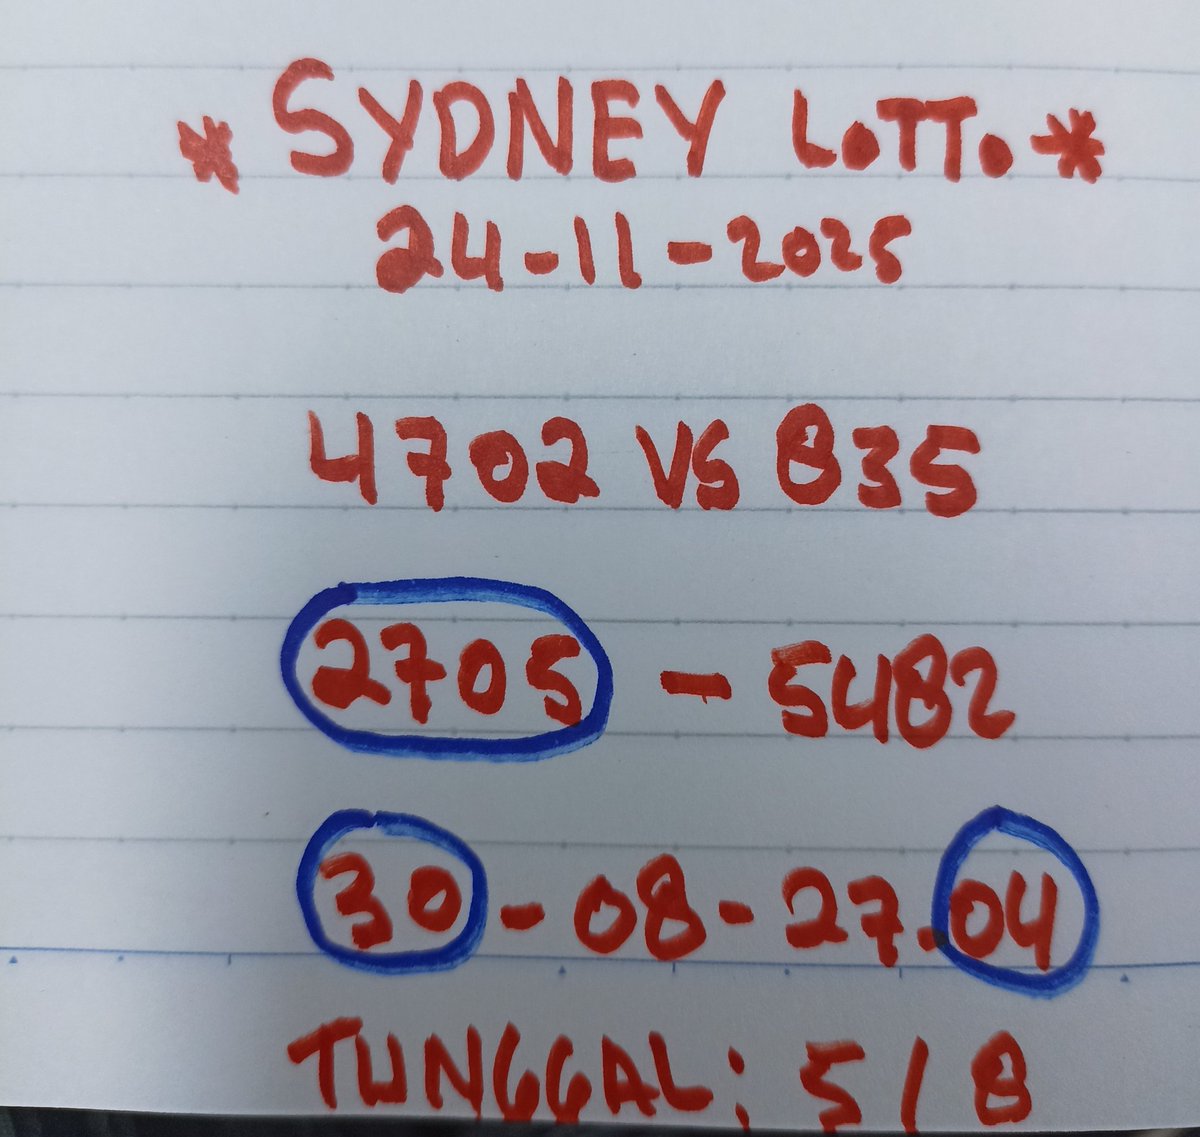 * SYDNEY LOTTO *
24-11-2025
4702 VS 835
2705 - 5482
30-08-27.04
TUNGGAL: 5/8